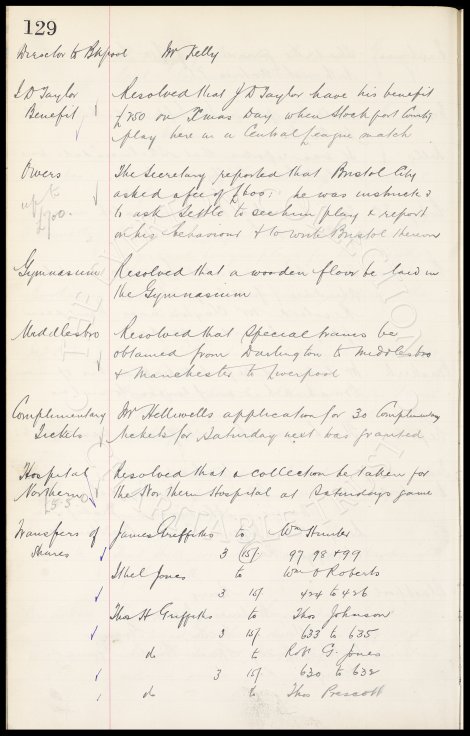 129
Director to B'kpool Mr Kelly
J D Taylor Resolved that J D Taylor have his benefit
Benefit £750 on Xmas Day when Stockport County
play here in a Central League match
Owers The Secretary reported that Bristol City
up to asked a fee of £600: he was instructed
£700. to ask Settle to see him play & report
on his behaviour & to write Bristol thereon
Gymnasium Resolved that a wooden floor be laid in
the Gymnasium
Middlesbro Resolved that Special trains be
obtained from Darlington to Middlesbro
& Manchester to Liverpool
Complimentary Mr Helliwells application for 30 Complimentary
Tickets tickets for Saturday next was granted
Hospital Resolved that a collection be taken for
Northern the Northern Hospital at Saturdays game
£5 5
Transfers of James Griffiths to Wm Hunter
Shares 3 15/ 97 98 & 99
Ithel Jones to Wm O Roberts
3 15/ 424 to 426
Thos H Griffiths to Thos Johnson
3 15/ 633 to 635
do to Robt G. Jones
3 15/ 630 to 632
do to Thos Prescott